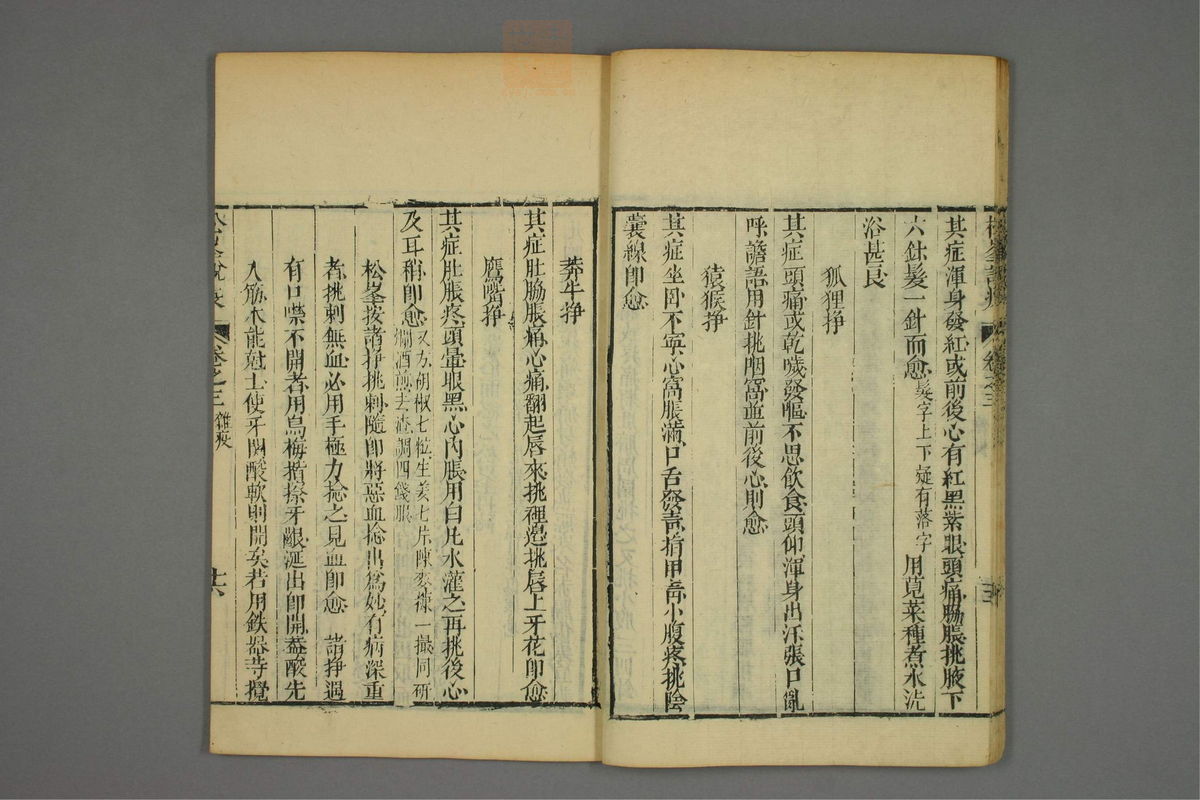 松峯說疫 卷之三
其症渾身發紅或前後心有紅黑紫眼頭痛脇脹挑腋下
六針髮一針而愈髮字上下疑有落字用莧菜種煮水洗
浴甚良
狐狸挣
其症頭痛或乾噦發嘔不思飲食頭仰渾身出汗張口亂
呼譫語用針挑咽窩並前後心則愈
猿猴挣
其症坐卧不寧心窩脹滿口舌發靑指甲靑小腹疼挑陰
囊線即愈
莽牛挣
其症肚脇脹痛心痛翻起唇來挑裡邊挑唇上牙花即愈
鷹嘴挣
其症肚脹疼頭暈眼黑心內脹用白凡水灌之再挑後心
及耳稍即愈又方胡椒七粒生姜七片陳麥𥻦一撮同研
爛酒煎去渣調四錢服
松峯按諸挣挑刺隨即將惡血捻出爲妙有病深重
者挑刺無血必用手極力捻之見血即愈 諸挣遇
有口噤不開者用烏梅揩擦牙齦涎出即開蓋酸先
入筋木能尅土使牙関酸軟則開矣若用鉄器等攪
松峯說疫 卷之三 雜疫 十六